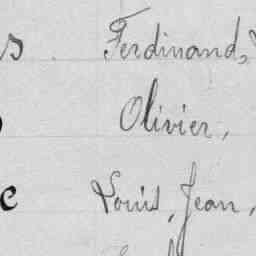 s Ferdinand,
Olivier,
e Louis, Jean,